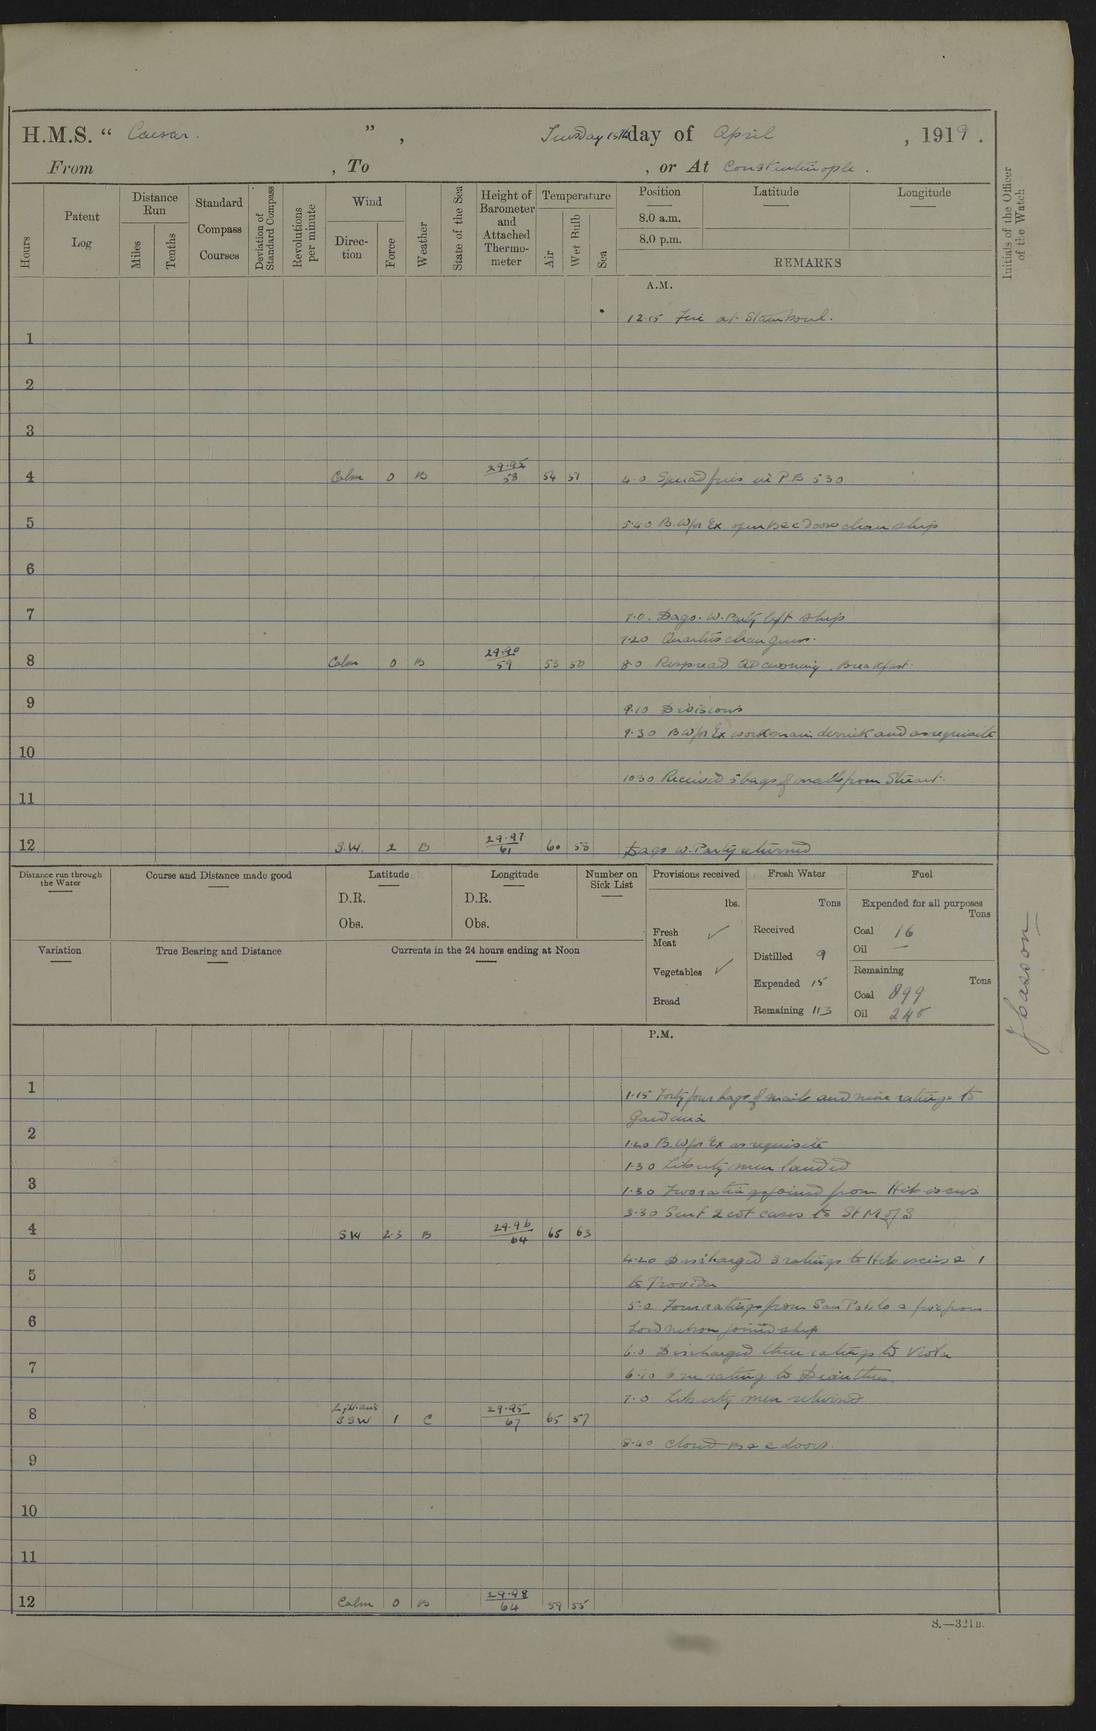 H.M.S. “ Caesar. ” , Tuesday 15th day of April , 1919 .
From , To , or At Constantinople .
Hours
Patent Log
Distance Run
Miles
Tenths
Standard Compass Courses
Deviation of Standard Compass
Revolutions per minute
Wind
Direction
Force
Weather
State of the Sea
Height of Barometer and Attached Thermometer
Temperature
Air
Wet Bulb
Sea
Position
8.0 a.m.
8.0 p.m.
Latitude
Longitude
REMARKS
Initials of the Officer of the Watch
A.M.
12.15 Fire at Stamboul.
1
2
3
4 Calm 0 B 29.95 58 54 51 4.0 Spread fires in P.B 530
5 5.40 B. W/ps Ex open B & C doors clean ship
6
7 7.0. Dago. W. Party left ship
7.20 Quarters clean guns.
8 Calm 0 B 29.90 59 53 50 8.0 Respread awning. Breakfast.
9 9.10 Divisions
9.30 B W/ps Ex work main derrick and as requisite
10
10.30 Received 5 bags of mails from Stuart.
11
12 S.W. 2 B 29.97 61 60 55 Dago W. Party returned
Distance run through the Water
Course and Distance made good
Latitude
D.R.
Obs.
Longitude
D.R.
Obs.
Number on Sick List
Provisions received
lbs.
Fresh Meat ✓
Vegetables ✓
Bread
Fresh Water
Tons
Received
Distilled 9
Expended 15
Remaining 113
Fuel
Expended for all purposes
Tons
Coal 16
Oil —
Remaining
Tons
Coal 899
Oil 245
Variation
True Bearing and Distance
Currents in the 24 hours ending at Noon
P.M.
1 1.15 Forty four bags of mails and nine ratings to
Gardenia
2 1.20 B. W/ps Ex as requisite
1.30 Liberty men landed
3 1.30 Two ratings joined from Hibiscus
3.30 Sent 2 cot cases to St M of S
4 SW 2.3 B 29.96 64 65 63
4.20 Discharged 3 ratings to Hibiscus & 1
5 to Provider
5.0 Four ratings from San Pablo & five from
6 Lord Nelson joined ship
6.0 Discharged three ratings to
7 6.10 one rating to Dianthus
7.0 Liberty men returned
8 Lt airs SSW 1 C 29.95 67 65 57
8.40 Closed B & C doors.
9
10
11
12 Calm 0 B 29.98 64 59 55
S.—321B.